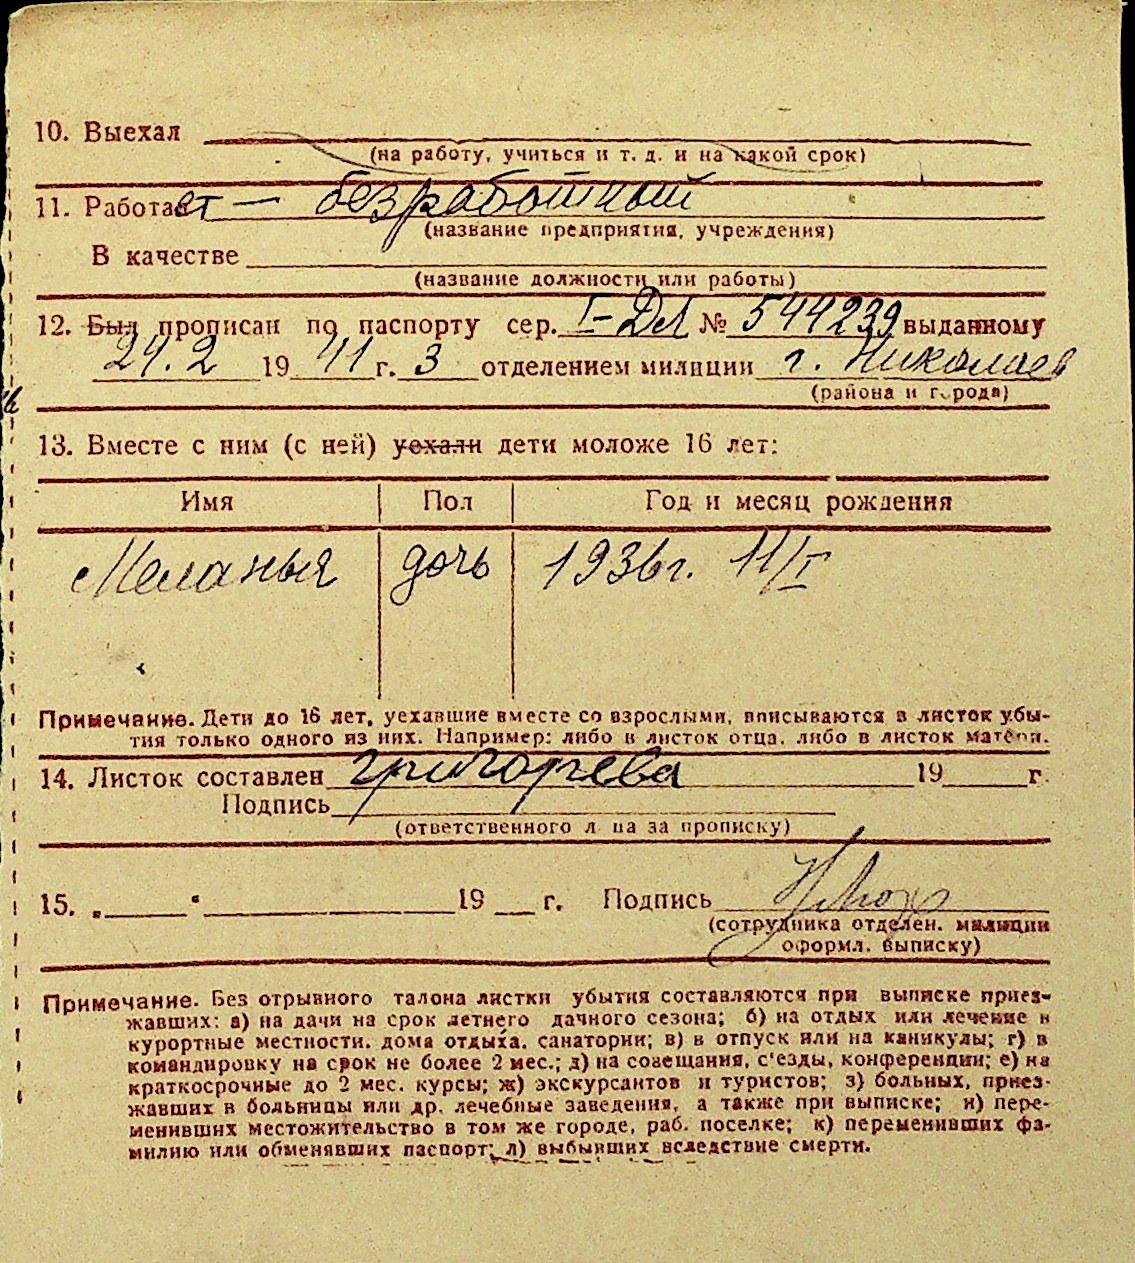 10. Выехал
(на работу, учиться и т. д. и на какой срок)
11. Работает — безработный
(название предприятия, учреждения)
В качестве
(название должности или работы)
12. Был прописан по паспорту сер. I-ДЛ № 544239 выданному
24.2 1941 г. 3 отделением милиции г. Николаев
(района и города)
13. Вместе с ним (с ней) уехали дети моложе 16 лет:
Имя Пол Год и месяц рождения
Меланья дочь 1936г. 11/I
Примечание. Дети до 16 лет, уехавшие вместе со взрослыми, вписываются в листок убы-
тия только одного из них. Например: либо в листок отца, либо в листок матери.
14. Листок составлен Григорьева 19 г.
Подпись
(ответственного лица за прописку)
15. „ " 19 г. Подпись
(сотрудника отделен. милиции
оформл. выписку)
Примечание. Без отрывного талона листки убытия составляются при выписке приез-
жавших: а) на дачи на срок летнего дачного сезона; б) на отдых или лечение в
курортные местности, дома отдыха, санатории; в) в отпуск или на каникулы; г) в
командировку на срок не более 2 мес.; д) на совещания, с'езды, конференции; е) на
краткосрочные до 2 мес. курсы; ж) экскурсантов и туристов; з) больных, приез-
жавших в больницы или др. лечебные заведения, а также при выписке; и) пере-
менивших местожительство в том же городе, раб. поселке; к) переменивших фа-
милию или обменявших паспорт; л) выбывших вследствие смерти.